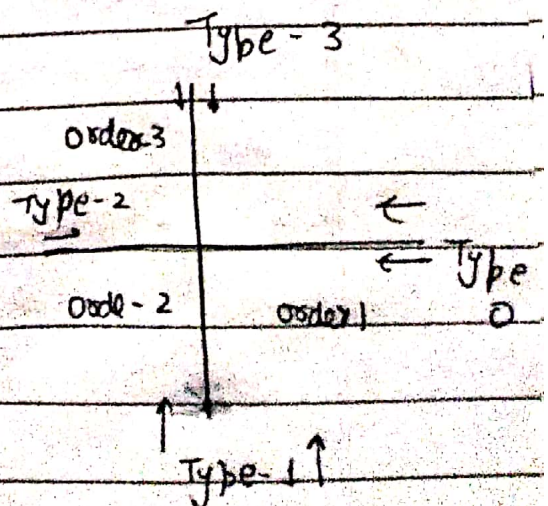 Type - 3
order-3
Type-2
Type
0
orde-2
order1
Type-1